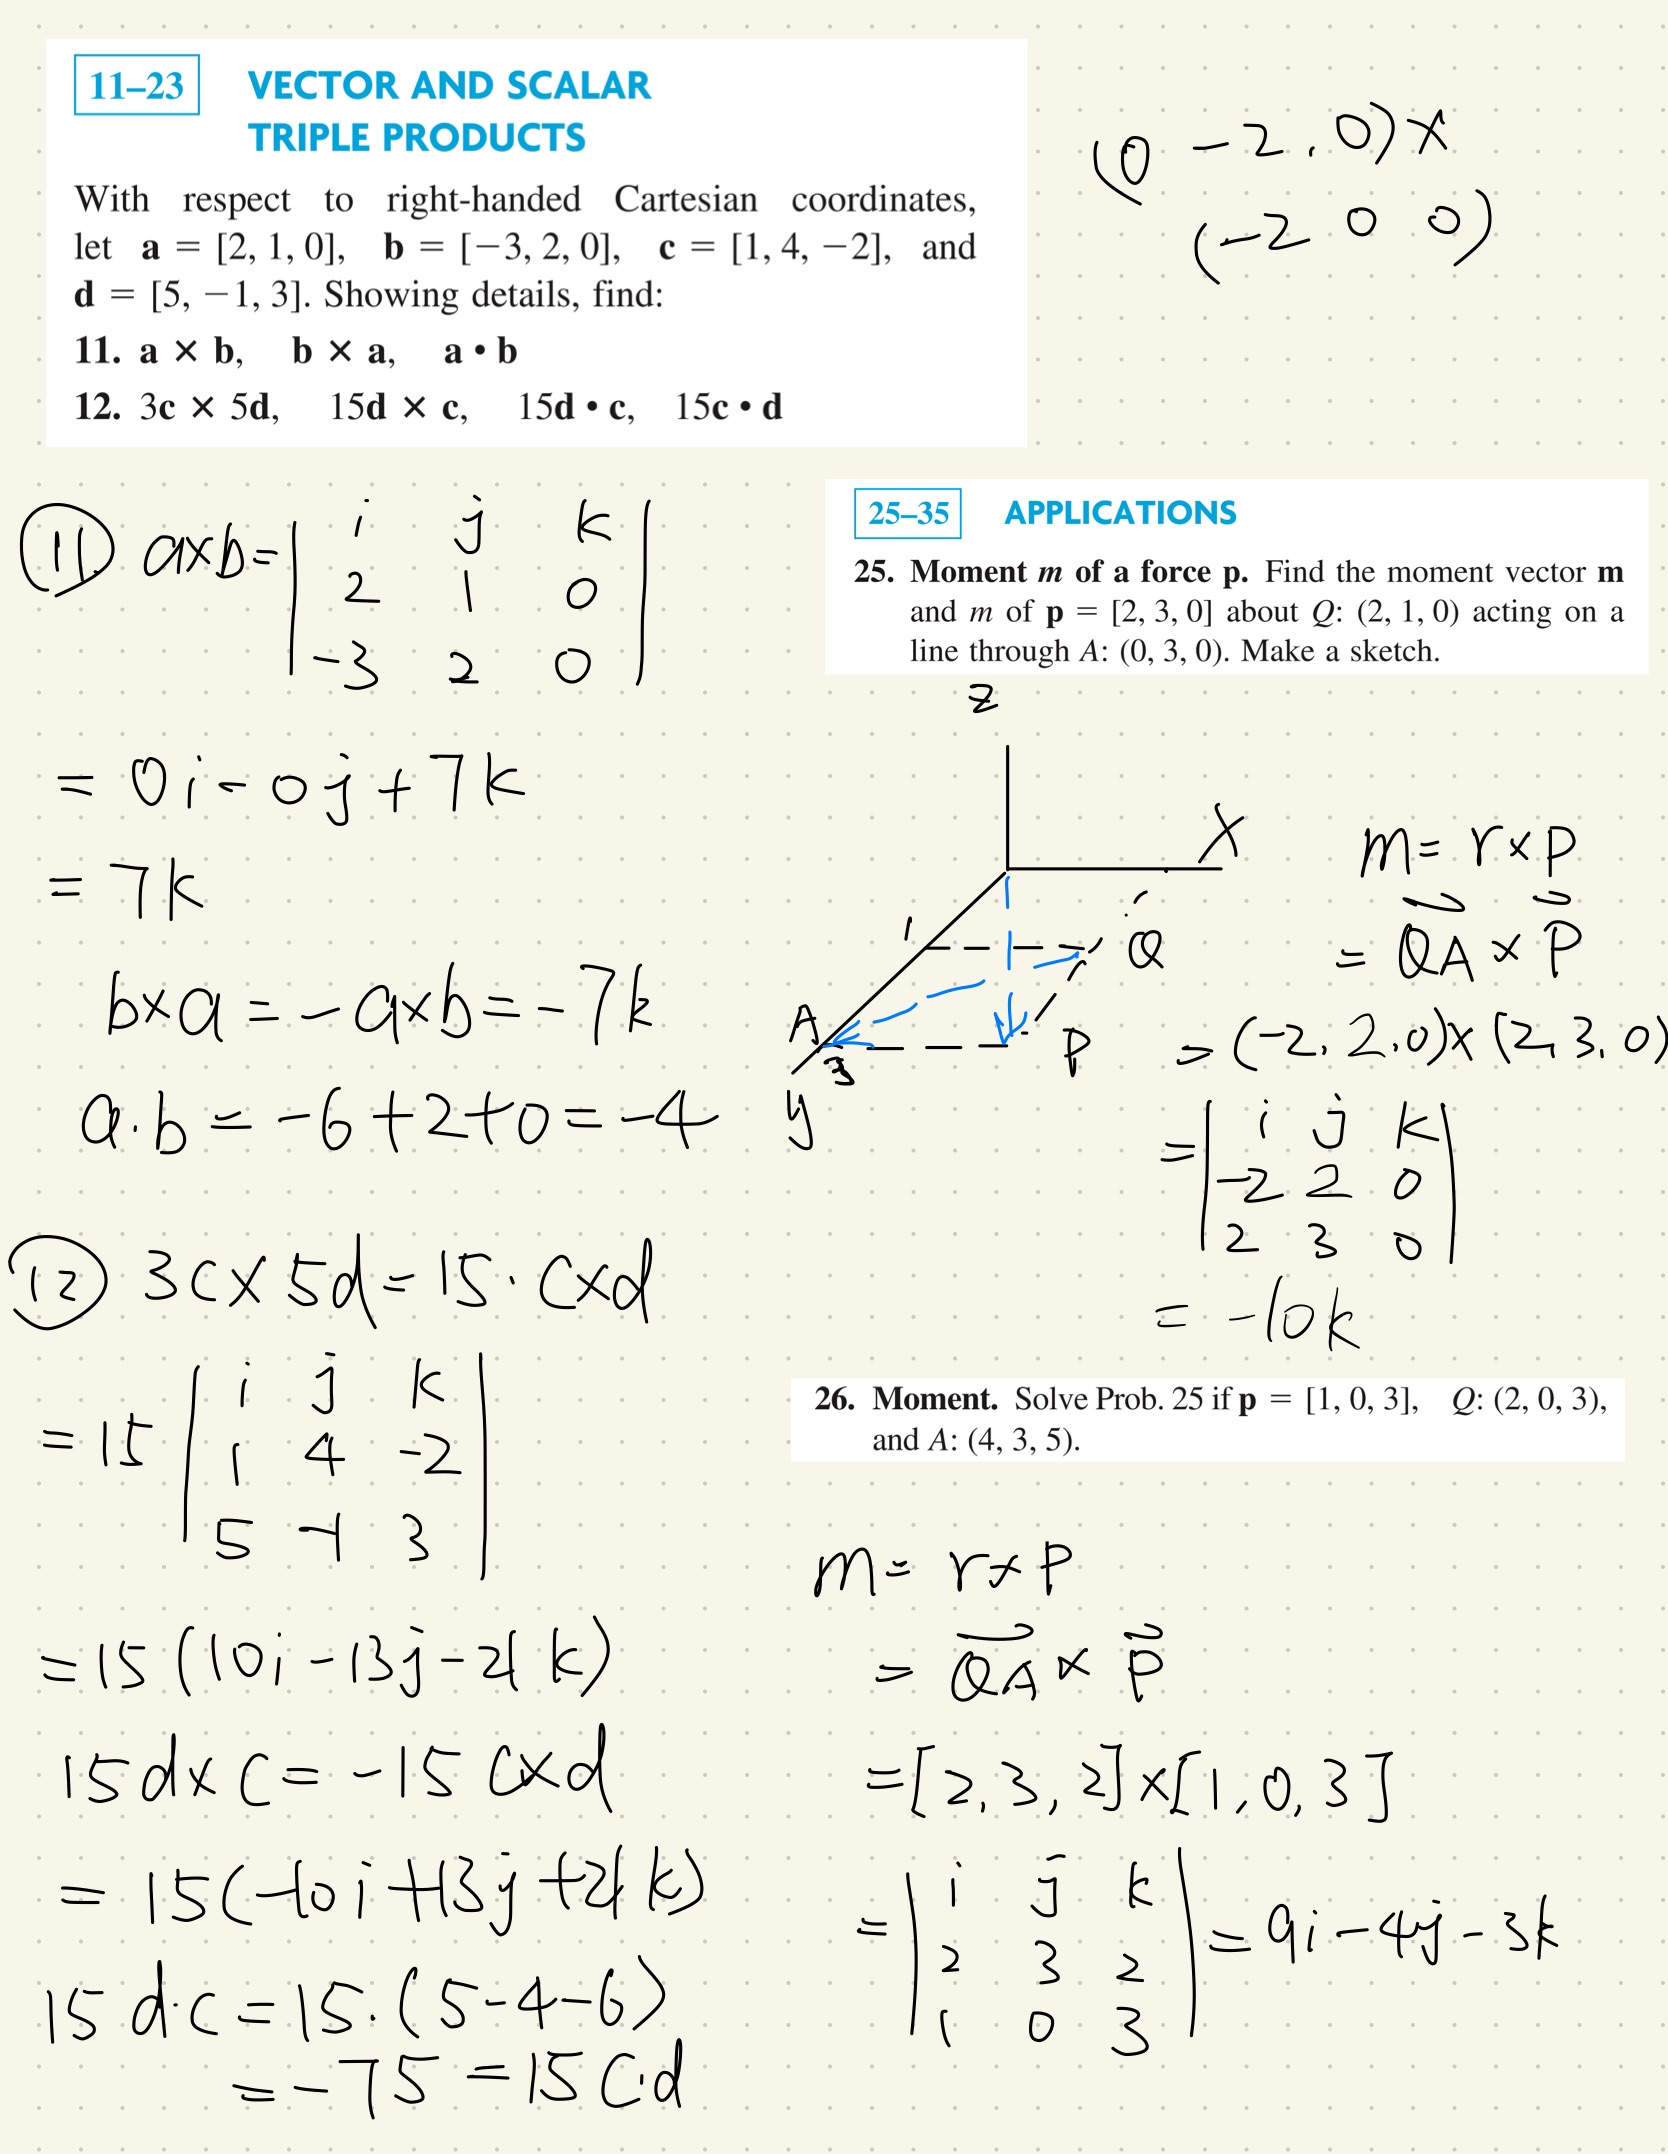 11–23 VECTOR AND SCALAR
TRIPLE PRODUCTS
With respect to right-handed Cartesian coordinates,
let a = [2, 1, 0], b = [−3, 2, 0], c = [1, 4, −2], and
d = [5, −1, 3]. Showing details, find:
11. a × b, b × a, a • b
12. 3c × 5d, 15d × c, 15d • c, 15c • d
(0 -2, 0)×
(-2 0 0)
⑪ a×b= | i j k |
| 2 1 0 |
| -3 2 0 |
= 0i - 0j + 7k
= 7k
b×a = -a×b = -7k
a.b = -6+2+0 = -4
⑫ 3c × 5d = 15 · c×d
= 15 | i j k |
| 1 4 -2 |
| 5 -1 3 |
= 15 (10i - 13j - 21k)
15d×c = -15 c×d
= 15(-10i + 13j + 21k)
15 d·c = 15·(5-4-6)
= -75 = 15 c·d
25–35 APPLICATIONS
25. Moment m of a force p. Find the moment vector m
and m of p = [2, 3, 0] about Q: (2, 1, 0) acting on a
line through A: (0, 3, 0). Make a sketch.
z
X
1
Q
A
3
P
y
m = r×p
= QA × P
= (-2, 2, 0)×(2, 3, 0)
= | i j k |
| -2 2 0 |
| 2 3 0 |
= -10k
26. Moment. Solve Prob. 25 if p = [1, 0, 3], Q: (2, 0, 3),
and A: (4, 3, 5).
m = r×p
= QA × P
= [2, 3, 2]×[1, 0, 3]
= | i j k | = 9i - 4j - 3k
| 2 3 2 |
| 1 0 3 |